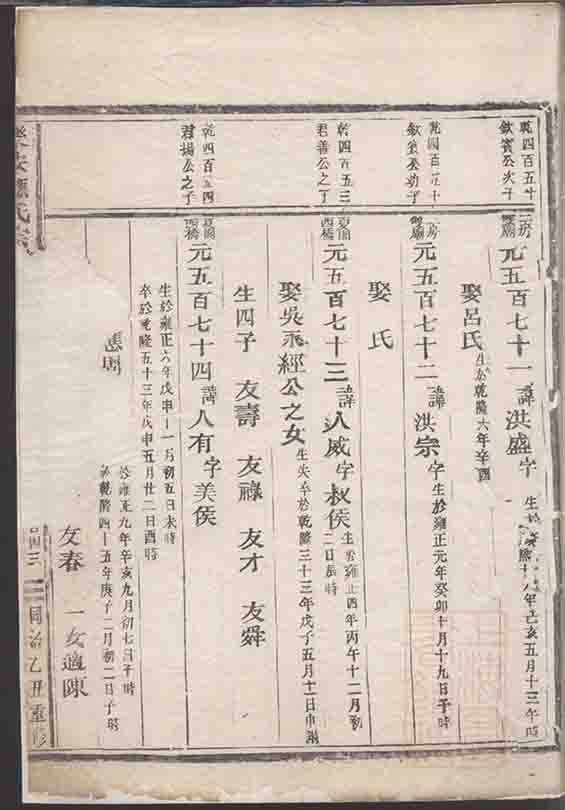 乾四百五十
欽賓公次子
二房
雙廟
元五百七十一諱洪盛字
八年己亥五月十三午時
娶呂氏生於乾隆六年辛酉
乾四百五十
欽賓公幼子
房
雙廟
元五百七十二諱洪宗字生於雍正元年癸卯十月十九日子時
娶氏
乾四百五三
君善公之子
夏閣
西橋
元五百七十三諱人威字叔侯生於雍正四年丙午十二月初
二日辰時
娶吳永經公之女生失卒於乾隆三十三年戊子五月十二日申時
生四子 友壽 友祿 友才 友舜
乾四百五四
君揚公之子
夏閣
西橋
元五百七十四諱人有字美侯
生於雍正六年戊申十一月初五日未時
卒於乾隆五十三年戊申五月廿二日酉時
於雍正九年辛亥九月初七日子時
卒乾隆四十五年庚子二月初二日子時
友春 一女適陳
氏宗
同治乙丑重修